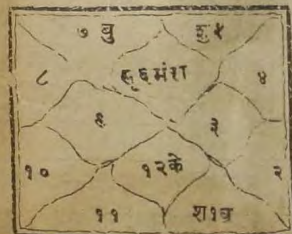 ७ बु शु ५
८ सू ६ मं रा ४
९ ३
१० १२ के २
११ श १ ब